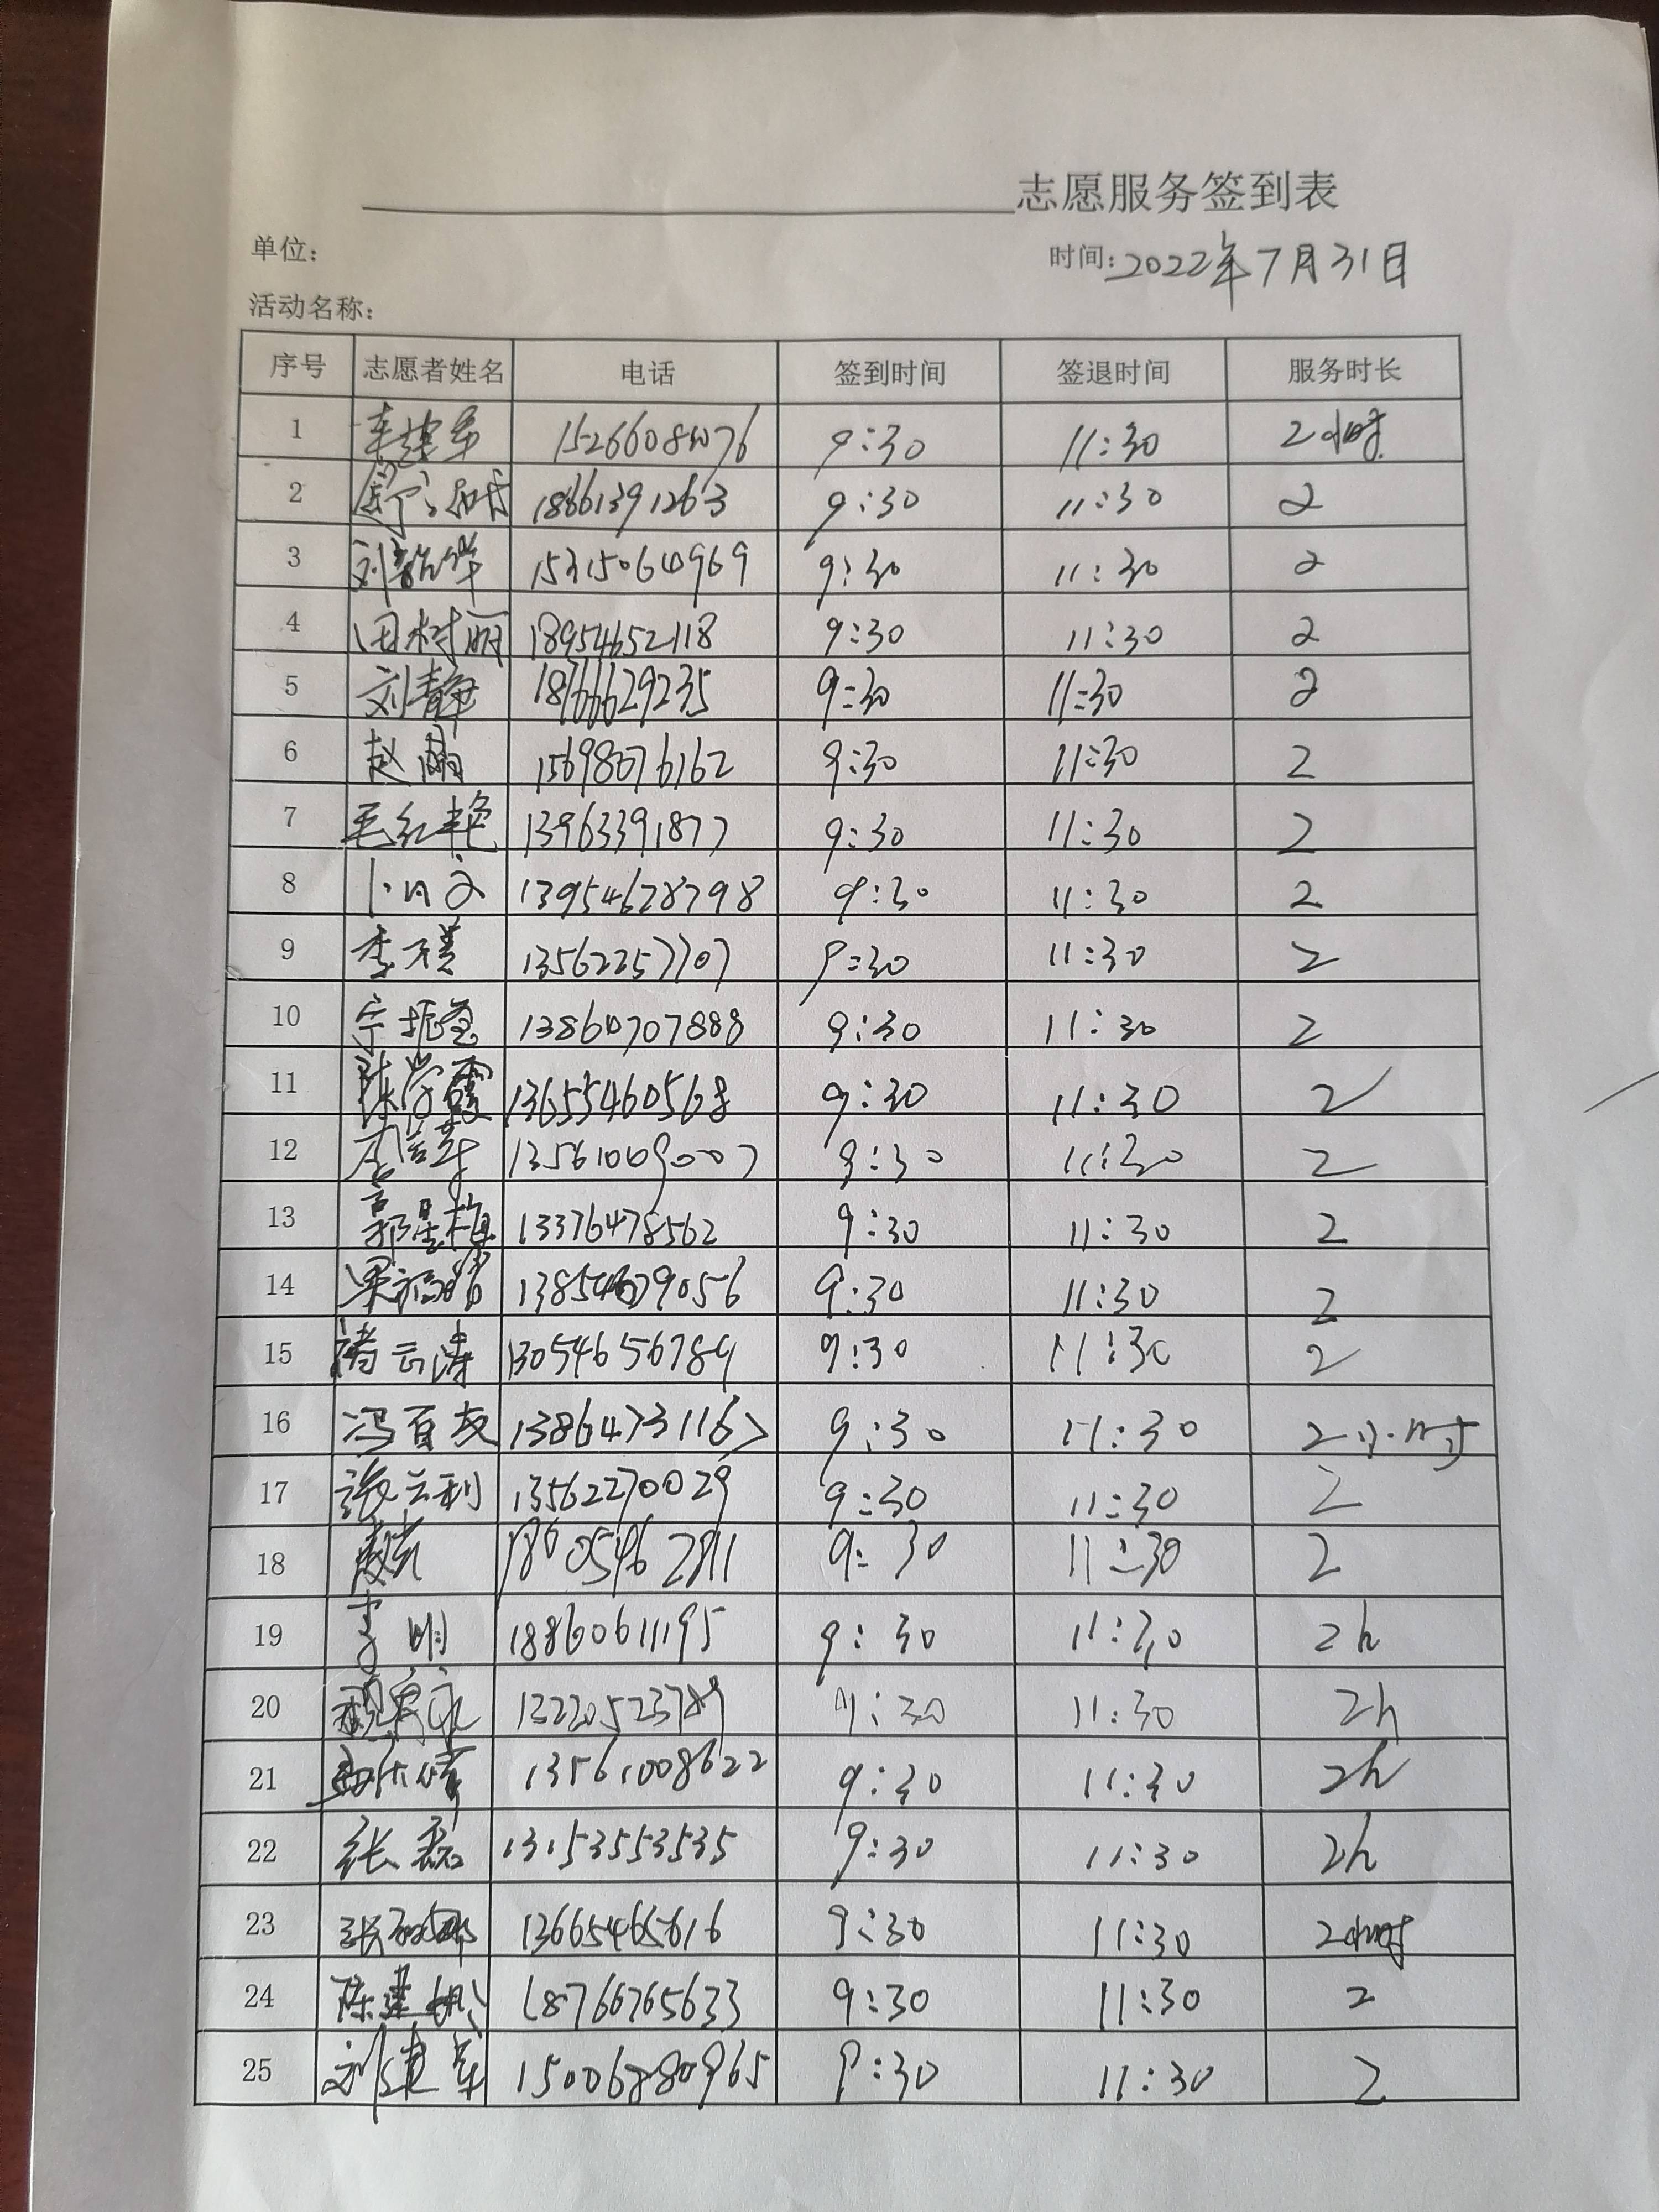 志愿服务签到表
单位：
时间：2022年7月31日
活动名称：
序号 志愿者姓名 电话 签到时间 签退时间 服务时长
1 9:30 11:30 2小时
2 18661391263 9:30 11:30 2
3 15315064969 9:30 11:30 2
4 田树丽 18954652118 9:30 11:30 2
5 刘静 18766629235 9:30 11:30 2
6 赵 15698076162 9:30 11:30 2
7 毛红艳 13963391877 9:30 11:30 2
8 13954628798 9:30 11:30 2
9 13562257707 9:30 11:30 2
10 13864707888 9:30 11:30 2
11 陈学霞 13655460568 9:30 11:30 2
12 13561009007 9:30 11:30 2
13 郭星梅 13376478562 9:30 11:30 2
14 9:30 11:30 2
15 褚云涛 13054656789 9:30 11:30 2
16 冯百友 13864731167 9:30 11:30 2小时
17 张立利 13562270029 9:30 11:30 2
18 9:30 11:30 2
19 李明 18860611195 9:30 11:30 2h
20 13220523789 9:30 11:30 2h
21 13561008622 9:30 11:30 2h
22 张磊 13153553535 9:30 11:30 2h
23 13665465616 9:30 11:30 2小时
24 18766765633 9:30 11:30 2
25 刘建军 15006880965 9:30 11:30 2